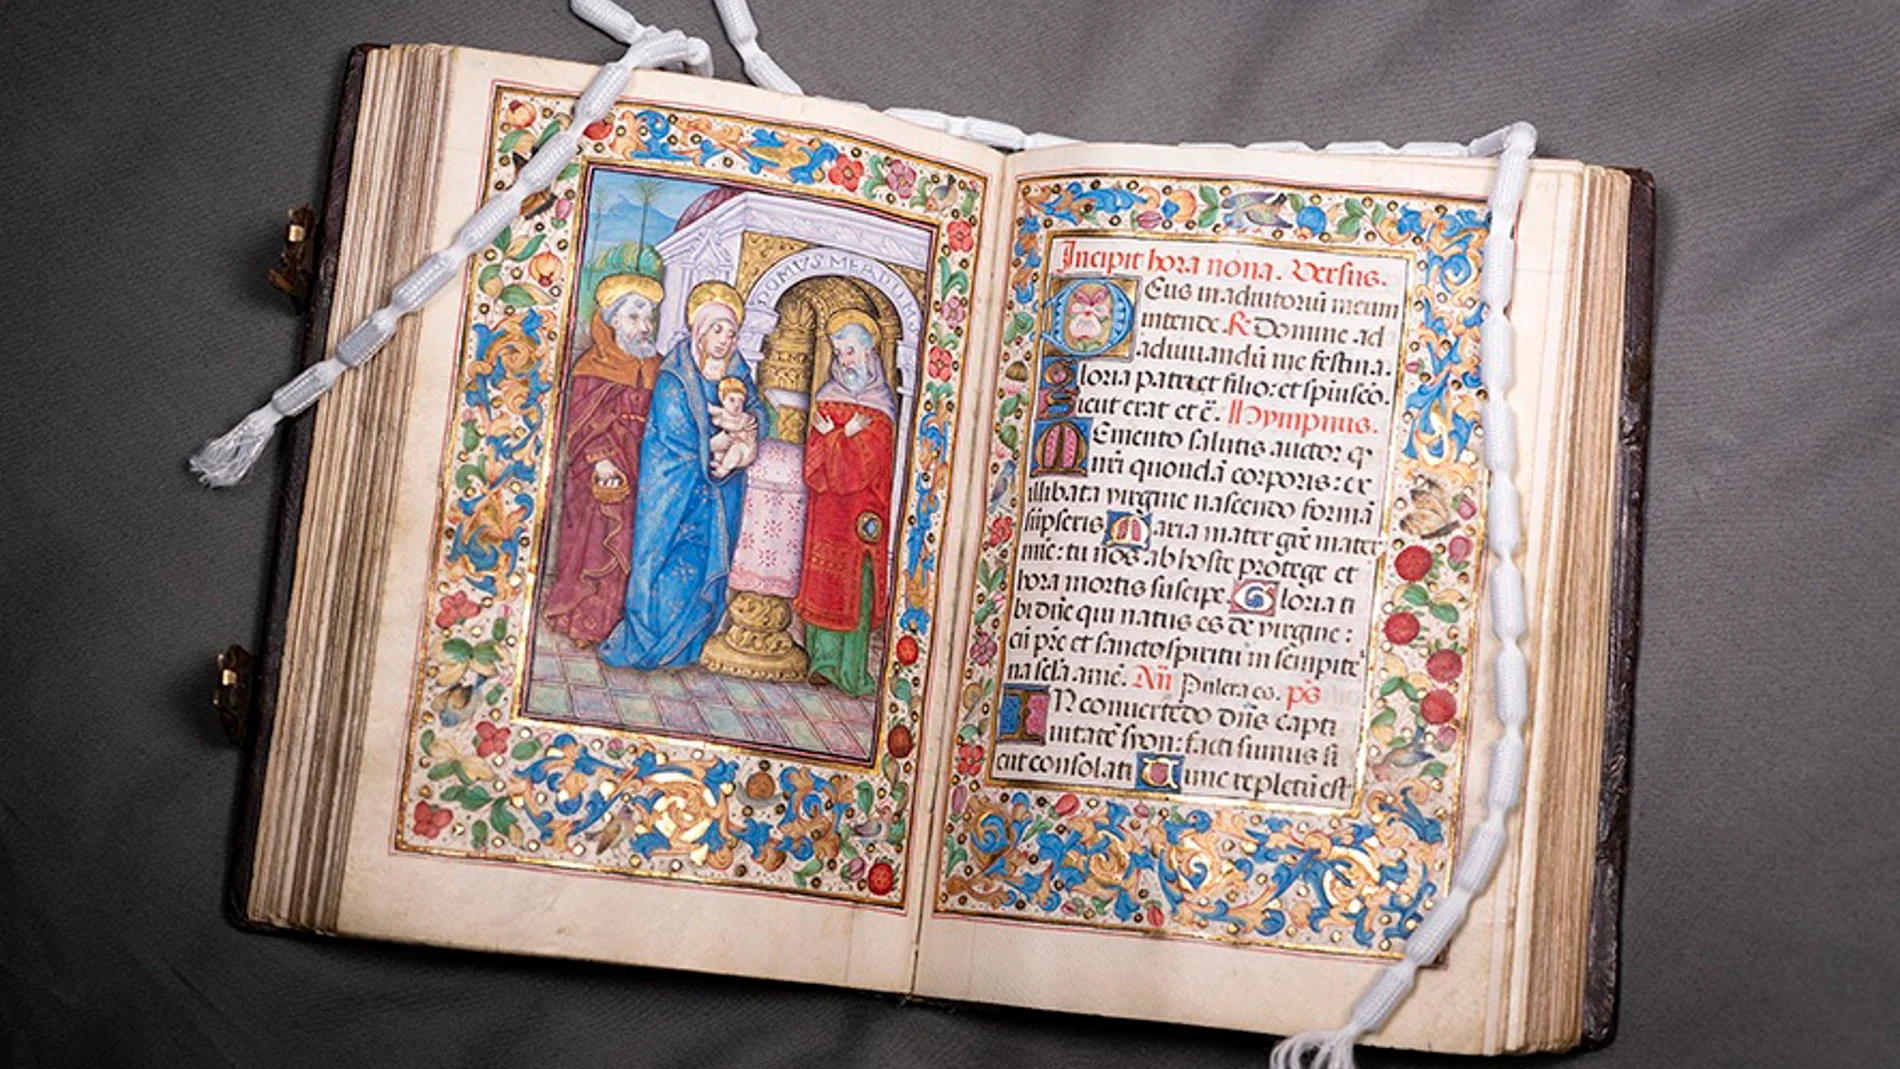 DOMVS MEA DOM
Incipit hora nona. Versus.
Deus in adiutoriū meum
intende. R Domine ad
adiuuandū me festina.
Gloria patri et filio: et spiu scō.
Sicut erat et c̄. Hympnus.
Memento salutis auctor q
nr̄i quondā corporis: ex
illibata virgine nascendo formā
sūpseris. Maria mater gr̄e mater
mīe: tu nos ab hoste protege et
hora mortis suscipe. Gloria ti
bi dn̄e qui natus es de virgine:
cū pr̄e et sancto spiritu in sempite
na sc̄la. amē. An̄ Pulcra es. ps̄
In conuertēdo dn̄s capti
uitatē syon: facti sumus si
cut consolati Tunc repletū est